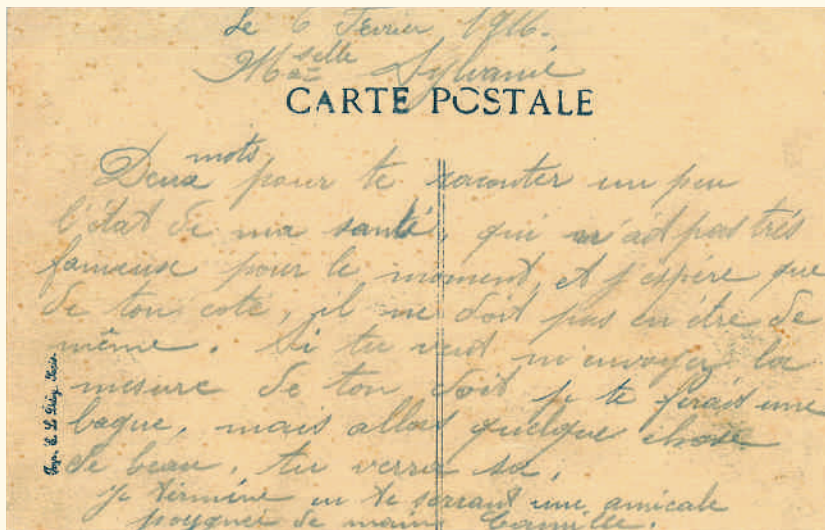 Le 6 Fevrier 1916.
Melle Sylvanie
CARTE POSTALE
Deux mots pour te raconter un peu
l'état de ma santé, qui n'ait pas très
fameuse pour le moment, et j'espère que
de ton coté, il ne doit pas en être de
même. Si tu veut m'envoyer la
mesure de ton doit je te ferais une
bague, mais allos quelque chose
de beau, tu verra sa.
Je termine en te serrant une amicale
poignée de main Camille.
Imp. E. Le Deley, Paris.